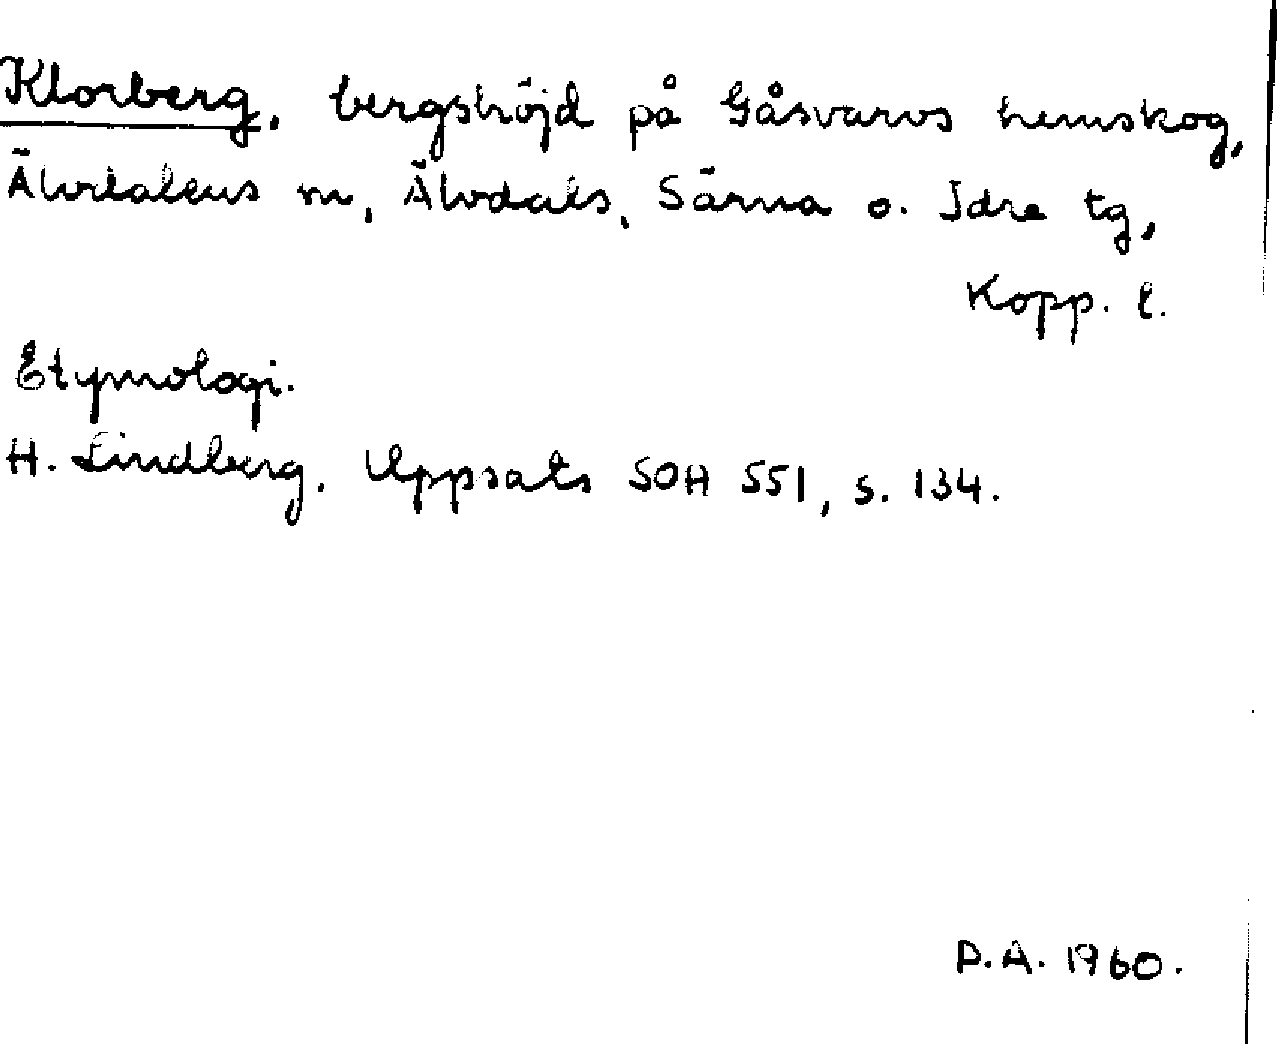 Klorberg, bergshöjd på Gåsvarvs hemskog,
Älvdalens m, Älvdals, Särna o. Idre tg,
Kopp. l.
Etymologi.
H. Lindberg, Uppsats SOH 551, s. 134.
D.A. 1960.